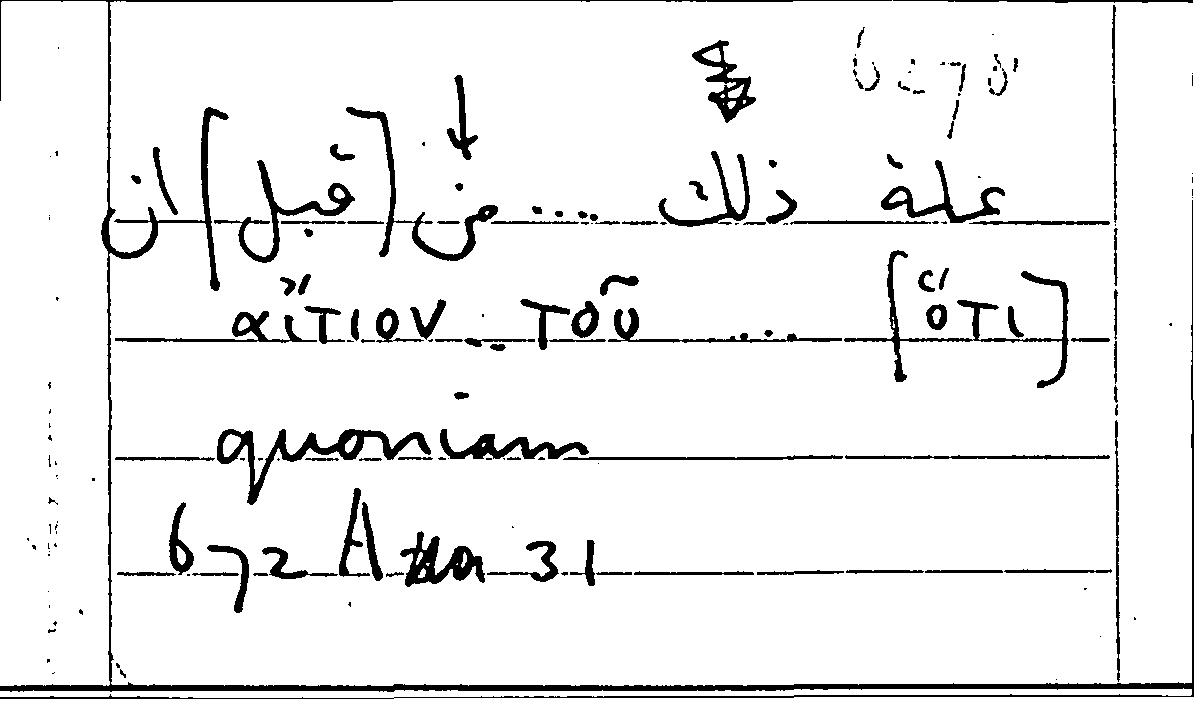 علة ذلك .... من [قبل] ان
αἴτιον .. τοῦ .... [ὅτι]
quoniam
672 A 31